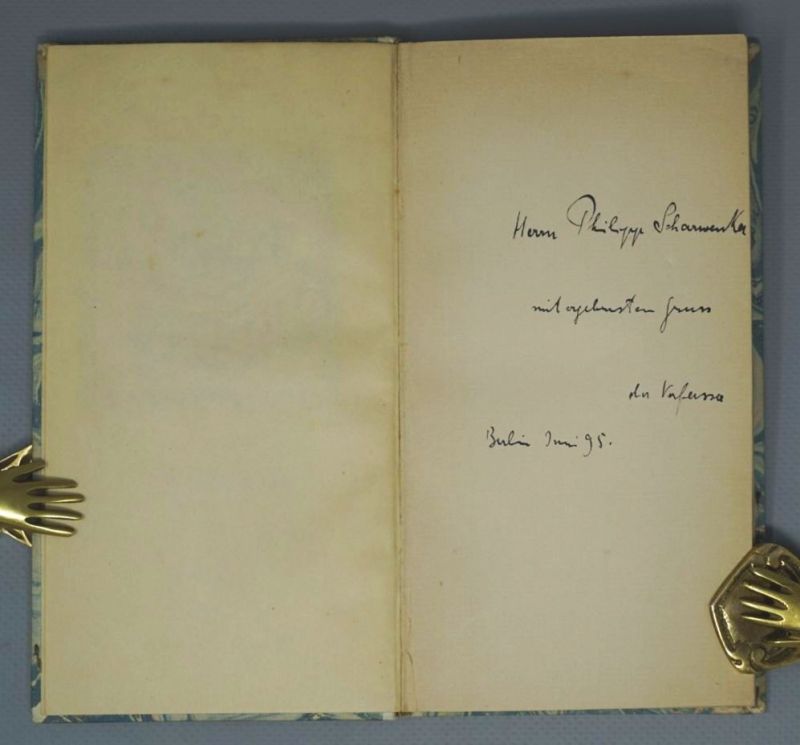 Herrn Philipp Scharwenka
mit ergebensten Gruss
der Verfasser
Berlin Juni 95.